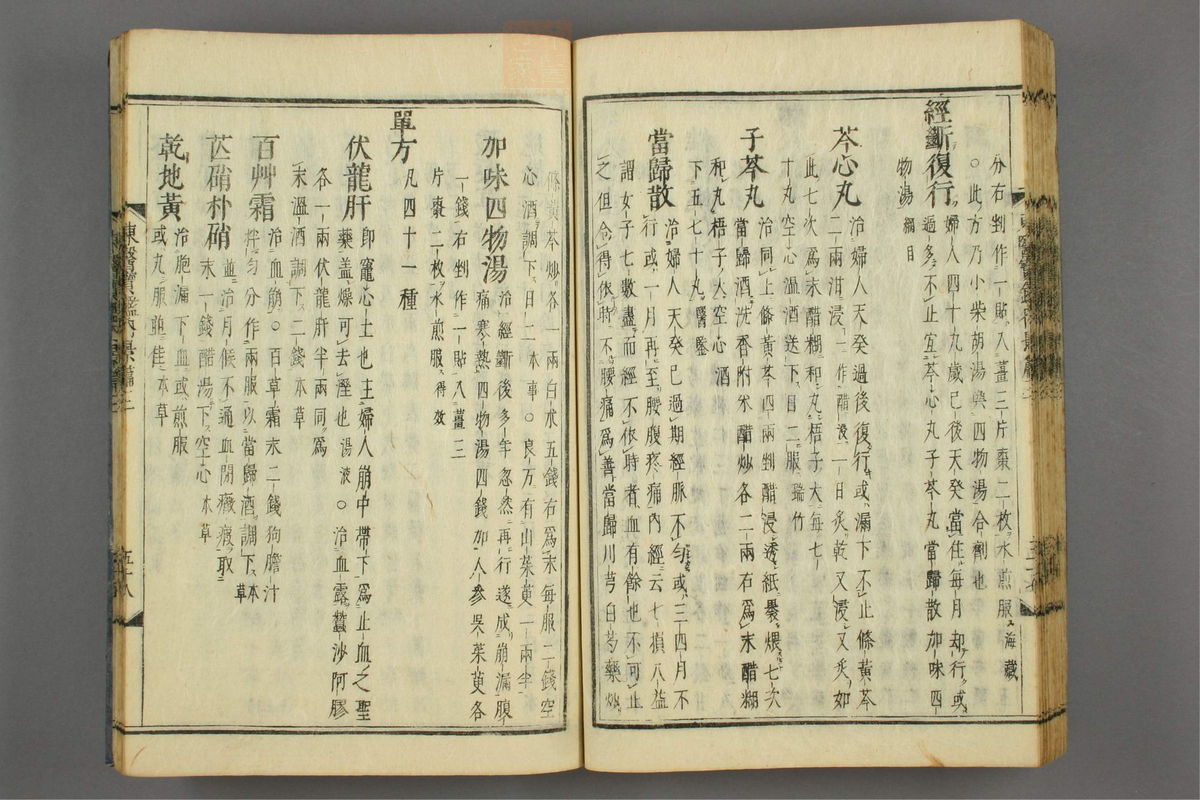 分右剉作一貼入薑三片棗二枚水煎服海藏
○此方乃小柴胡湯與四物湯合劑也
經斷復行
婦人四十九歲已後天癸當住每月却行或
過多不止宜芩心丸子芩丸當歸散加味四
物湯綱目
芩心丸
治婦人天癸過後復行或漏下不止條黃芩
二兩泔浸一作醋浸一日炙乾又浸又炙如
此七次爲末醋糊和丸梧子大每七
十丸空心溫酒送下日二服瑞竹
子芩丸
治同上條黃芩四兩剉醋浸透紙裹煨七次
當歸酒洗香附米醋炒各二兩右爲末醋糊
和丸梧子大空心酒
下五七十丸醫鑑
當歸散
治婦人天癸已過期經脉不勻或三四月不
行或一月再至腰腹疼痛內經云七損八益
謂女子七數盡而經不依時者血有餘也不可止
之但令得依時不腰痛爲善當歸川芎白芍藥炒
條黃芩炒各一兩白朮五錢右爲末每服二錢空
心酒調下日二本事○良方有山茱萸一兩半
加味四物湯
治經斷後多年忽然再行遂成崩漏腹
痛寒熱四物湯四錢加人參吳茱萸各
一錢右剉作一貼入薑三
片棗二枚水煎服得效
單方
凡四十一種
伏龍肝
卽竈心土也主婦人崩中帶下爲止血之聖
藥盖燥可去溼也湯液○治血露蠶沙阿膠
各一兩伏龍肝半兩同爲
末溫酒調下二錢本草
百艸霜
治血崩○百草霜末二錢狗膽汁
拌勻分作兩服以當歸酒調下本草
芒硝朴硝
並治月候不通血閉癥瘕取
末一錢醋湯下空心本草
乾地黃
治胞漏下血或煎服
或丸服皆佳本草
東醫寶鑑內景篇三
五十八